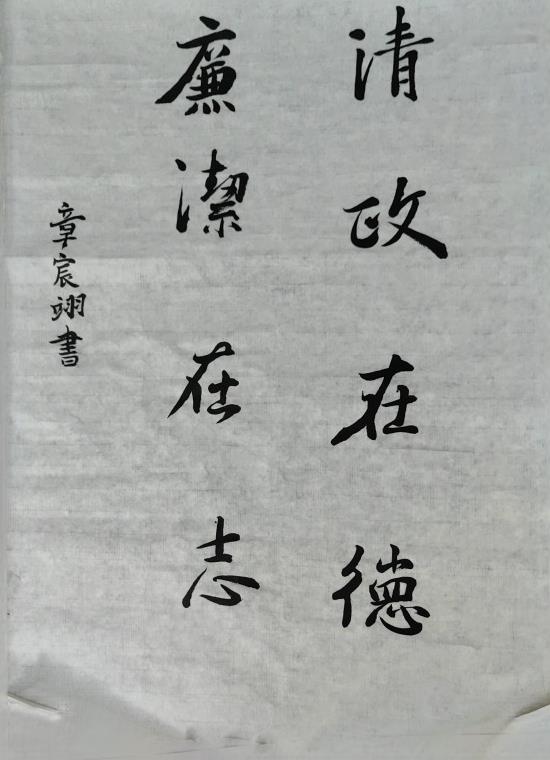 清政在德
廉潔在志
章宸翊書